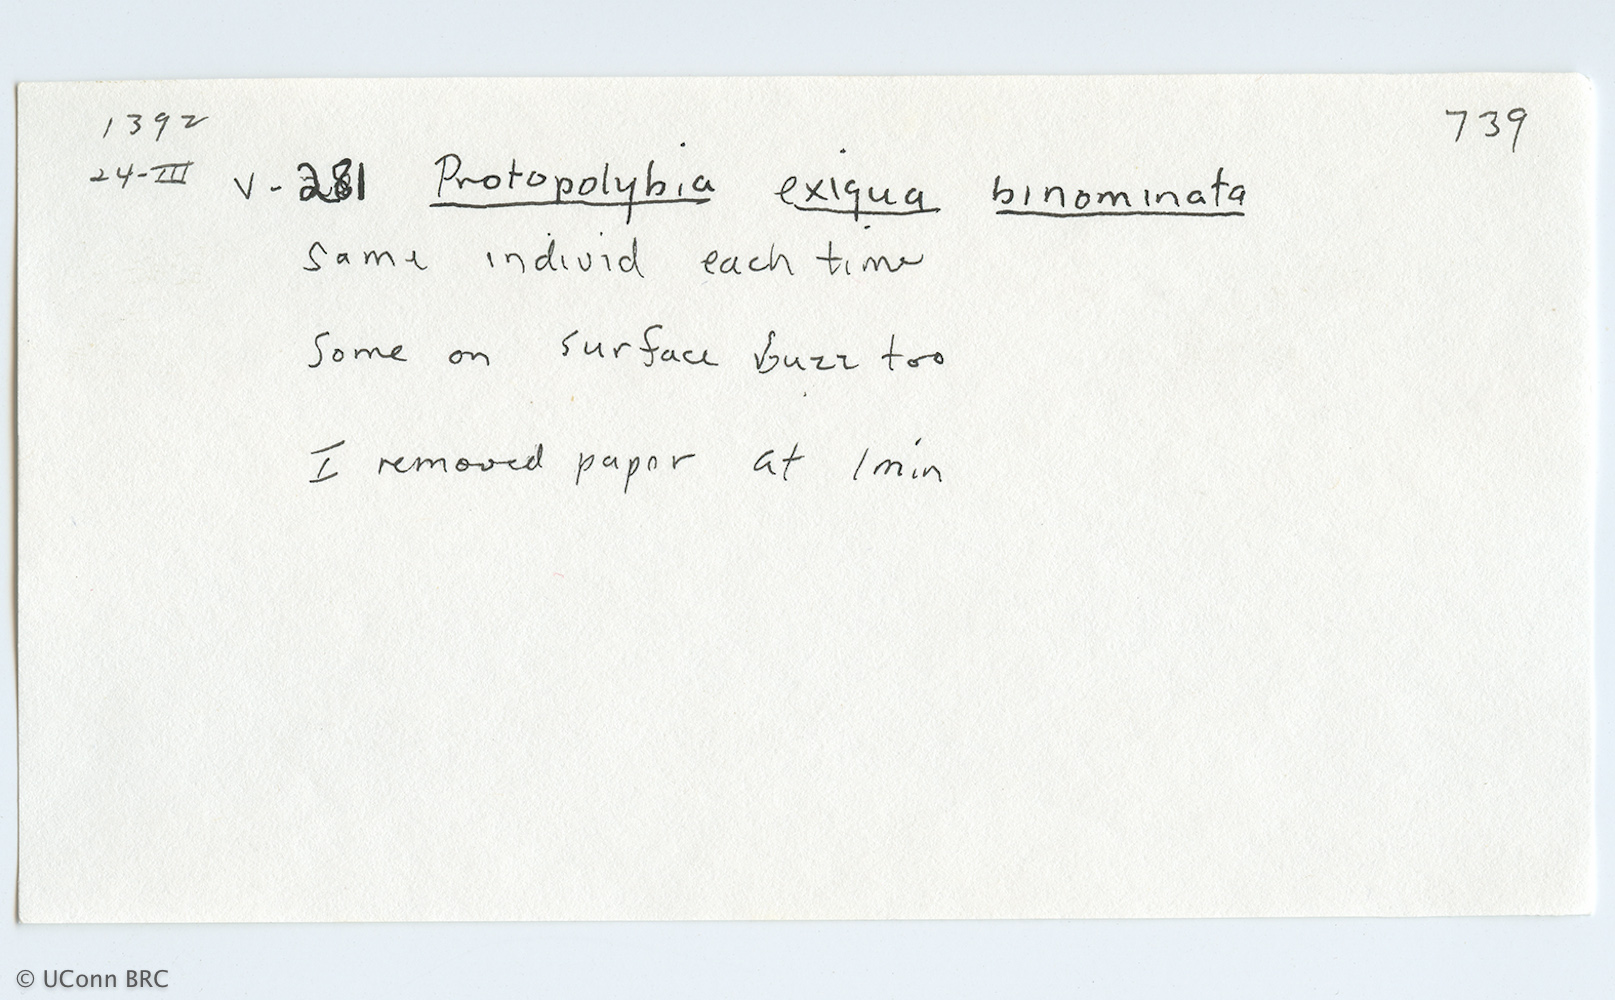 1392
739
24-III V-281 Protopolybia exiqua binominata
Same individ each time
Some on surface buzz too
I removed paper at 1min
© UConn BRC